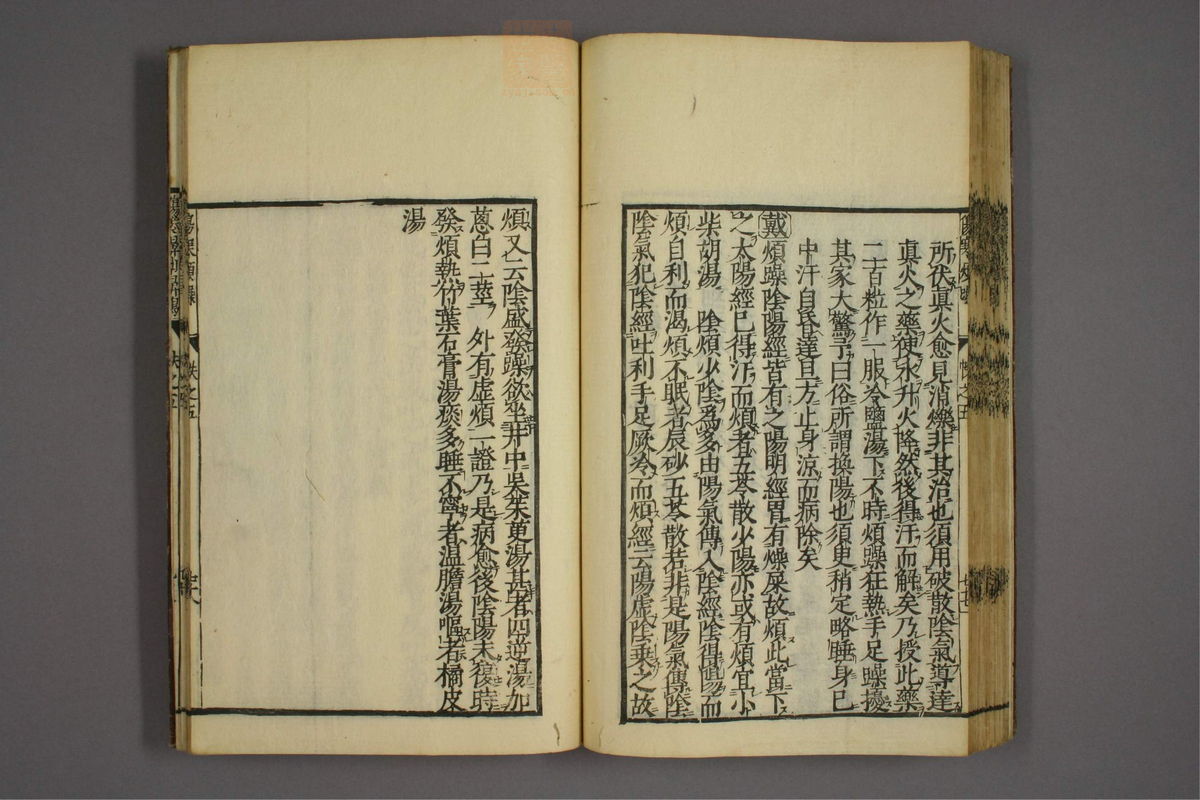 所伏眞火愈見消爍非其治也須用破散陰氣導達
眞火之藥使水升火降然後得汗而解矣乃授此藥
二百粒作一服冷鹽湯下不時煩躁狂熱手足躁擾
其家大驚予曰俗所謂換陽也須史稍定略睡身已
中汗自昏達旦方止身涼而病除矣
戴煩躁陰陽經皆有之陽明經胃有燥屎故煩此當下
之太陽經已得汗而煩者五苓散少陽亦或有煩宜小
柴胡湯 陰煩少陰爲多由陽氣傳入陰經陰得陽而
煩自利而渴煩不眠者辰砂五苓散若非是陽氣傳陰
陰氣犯陰經吐利手足厥冷而煩經云陽虛陰乘之故
煩又云陰盛發躁欲坐井中吳茱萸湯甚者四逆湯加
葱白二莖 外有虛煩一證乃是病愈後陰陽未復時
發煩熱竹葉石膏湯痰多睡不寧者温膽湯嘔者橘皮
湯
傷寒煩躁
帙之五